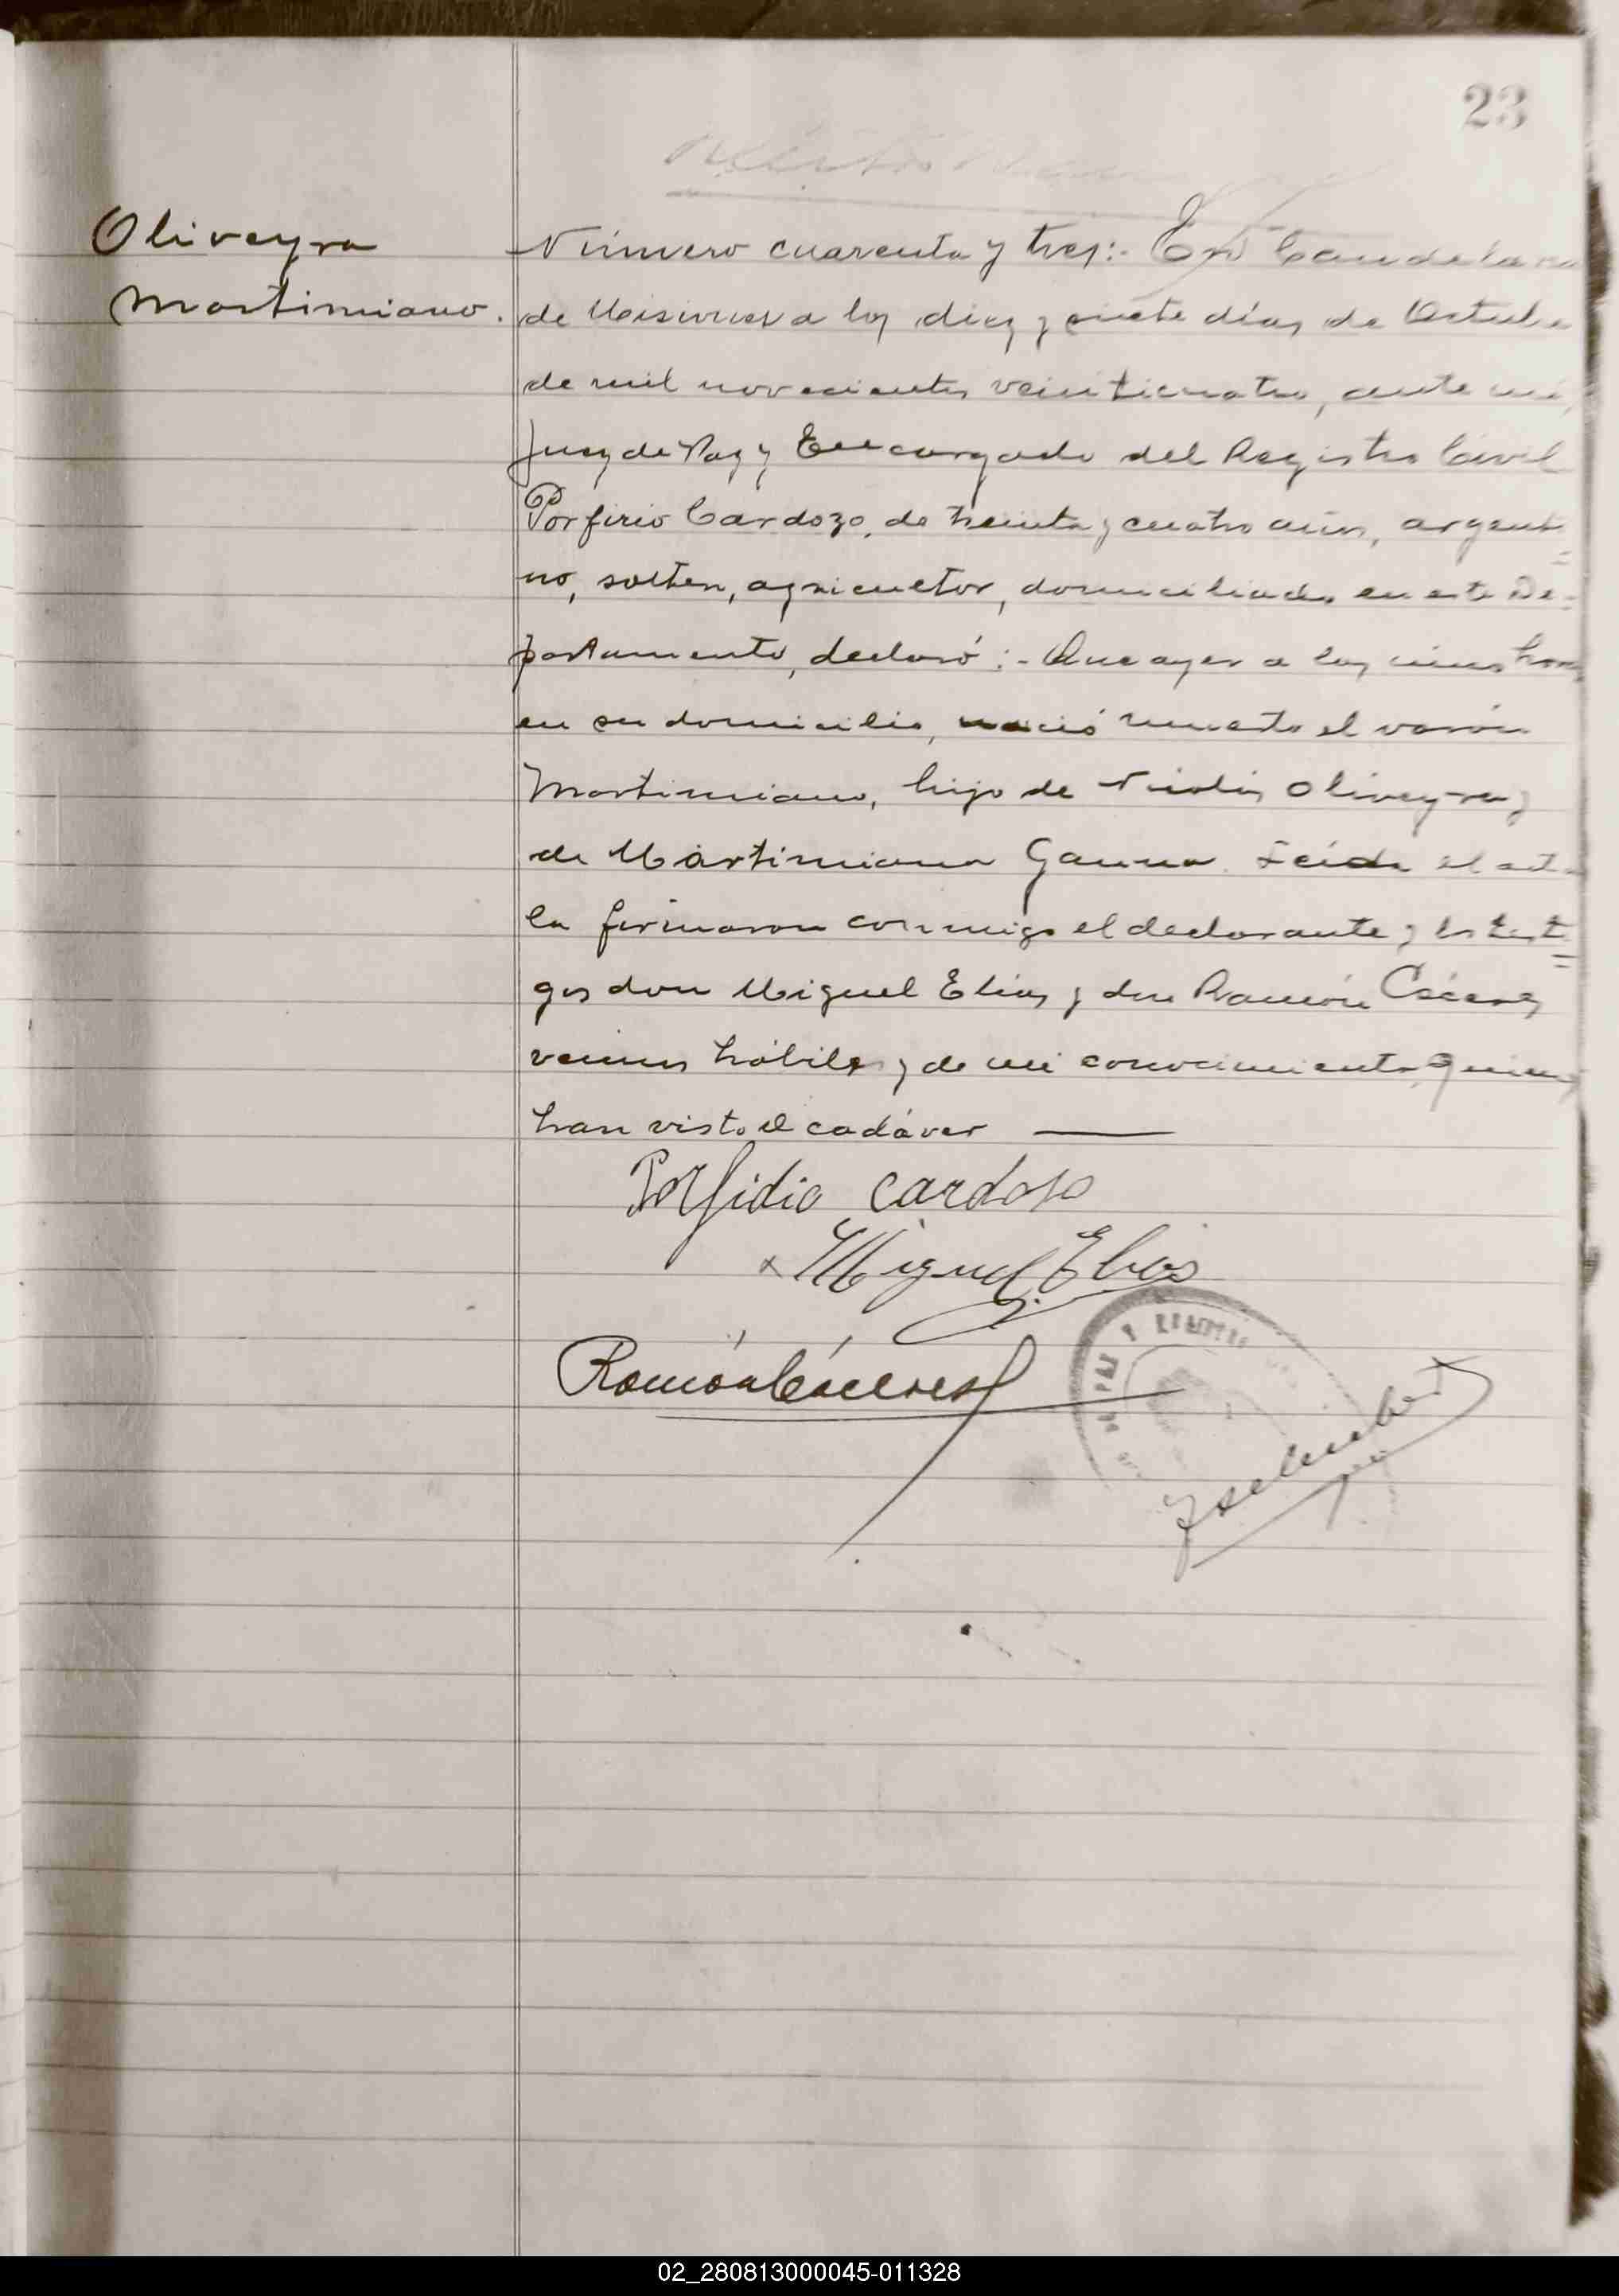 23
Oliveyra
Martimiano.
Número cuarenta y tres:- En Candelaria
de Misiones a los diez y siete días de Octubre
de mil novecientos veinticuatro, ante mí,
Juez de Paz y Encargado del Registro Civil
Porfirio Cardozo, de treinta y cuatro años, argenti
no, soltero, agricultor, domiciliado en este De-
partamento, declaró:- Que ayer a las cinco horas
en su domicilio, nació muerto el varón
Martimiano, hijo de Oliveyra y
de Martimiana Gauna. Leída el acta
la firmaron conmigo el declarante y los testi
gos don Miguel Elias y don Ramón Cáceres
vecinos hábiles y de mi conocimiento quienes
han visto el cadáver
Porfidio Cardoso
x Miguel Elias
Ramón Cáceres
DE PAZ Y
02_280813000045-011328